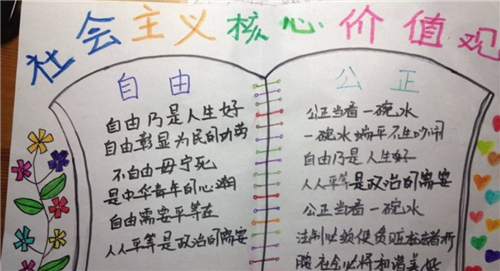 社会主义核心价值观
自由
自由乃是人生好
自由彰显为民的功劳
不自由毋宁死
是中华青年的心潮
自由需要平等在
人人平等是政治的需要
公正
公正当看一碗水
一碗水端平不生吵闹
自由乃是人生好
人人平等是政治的需要
公正当看一碗水
法制必须使贫贱在
随社会必将和谐美好